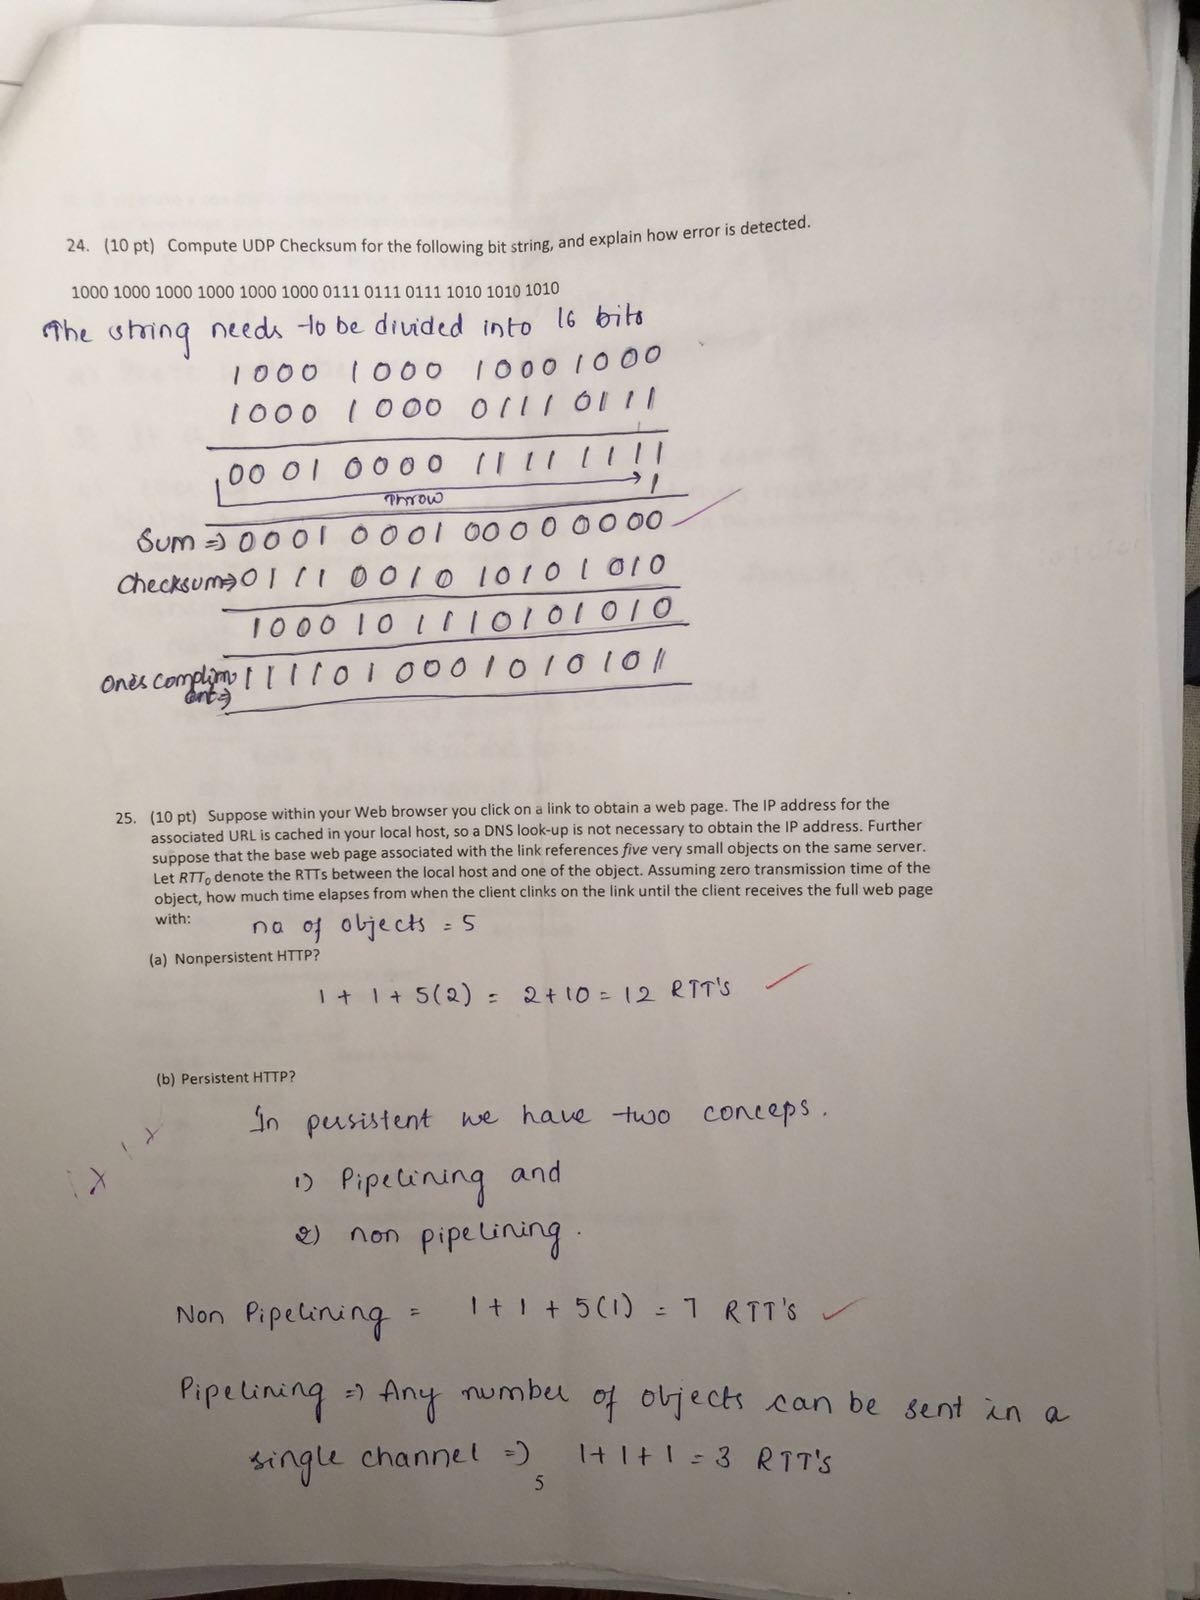 24. (10 pt) Compute UDP Checksum for the following bit string, and explain how error is detected.
1000 1000 1000 1000 1000 1000 0111 0111 0111 1010 1010 1010
The string needs to be divided into 16 bits
1000 1000 1000 1000
1000 1000 0111 0111
0001 0000 1111 1111
Throw 1
Sum ⇒ 0001 0001 0000 0000
Checksum ⇒ 0111 0010 1010 1010
1000 10 11110101010
One's compliment ⇒ 1111101 0001010 1011
25. (10 pt) Suppose within your Web browser you click on a link to obtain a web page. The IP address for the
associated URL is cached in your local host, so a DNS look-up is not necessary to obtain the IP address. Further
suppose that the base web page associated with the link references five very small objects on the same server.
Let RTT₀ denote the RTTs between the local host and one of the object. Assuming zero transmission time of the
object, how much time elapses from when the client clinks on the link until the client receives the full web page
with: no of objects = 5
(a) Nonpersistent HTTP?
1 + 1 + 5(2) = 2+10 = 12 RTT's
(b) Persistent HTTP?
In persistent we have two conceps.
1) Pipelining and
2) non pipelining.
Non Pipelining = 1 + 1 + 5(1) = 7 RTT's
Pipelining ⇒ Any number of objects can be sent in a
single channel ⇒ 1+1+1 = 3 RTT's
5